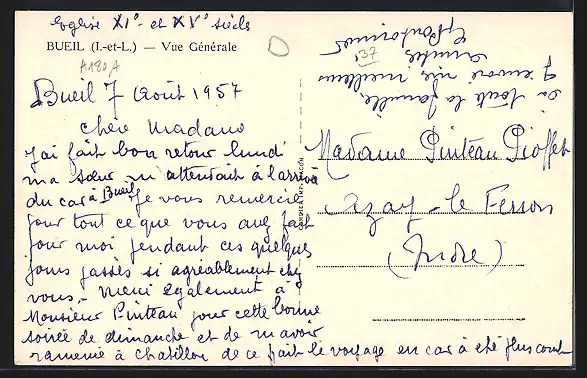 Eglise XI° et XV° siècle
BUEIL (I.-et-L.) — Vue Générale
A180A
Bueil 7 Août 1957
Chère Madame
J'ai fait bon retour lundi
ma sœur m'attendait à l'arrivée
du car à Bueil Je vous remercie
pour tout ce que vous avez fait
pour moi pendant ces quelques
jours passés si agréablement chez
vous,- merci également à
Monsieur Pinteau pour cette bonne
soirée de dimanche et de m'avoir
ramenée à Chatillon de ce fait le voyage en car à été plus court
à toute la famille
J'envoie mes meilleures
amitiés
137
Madame Pinteau Pioffet
Azay-le Ferron
(Indre)